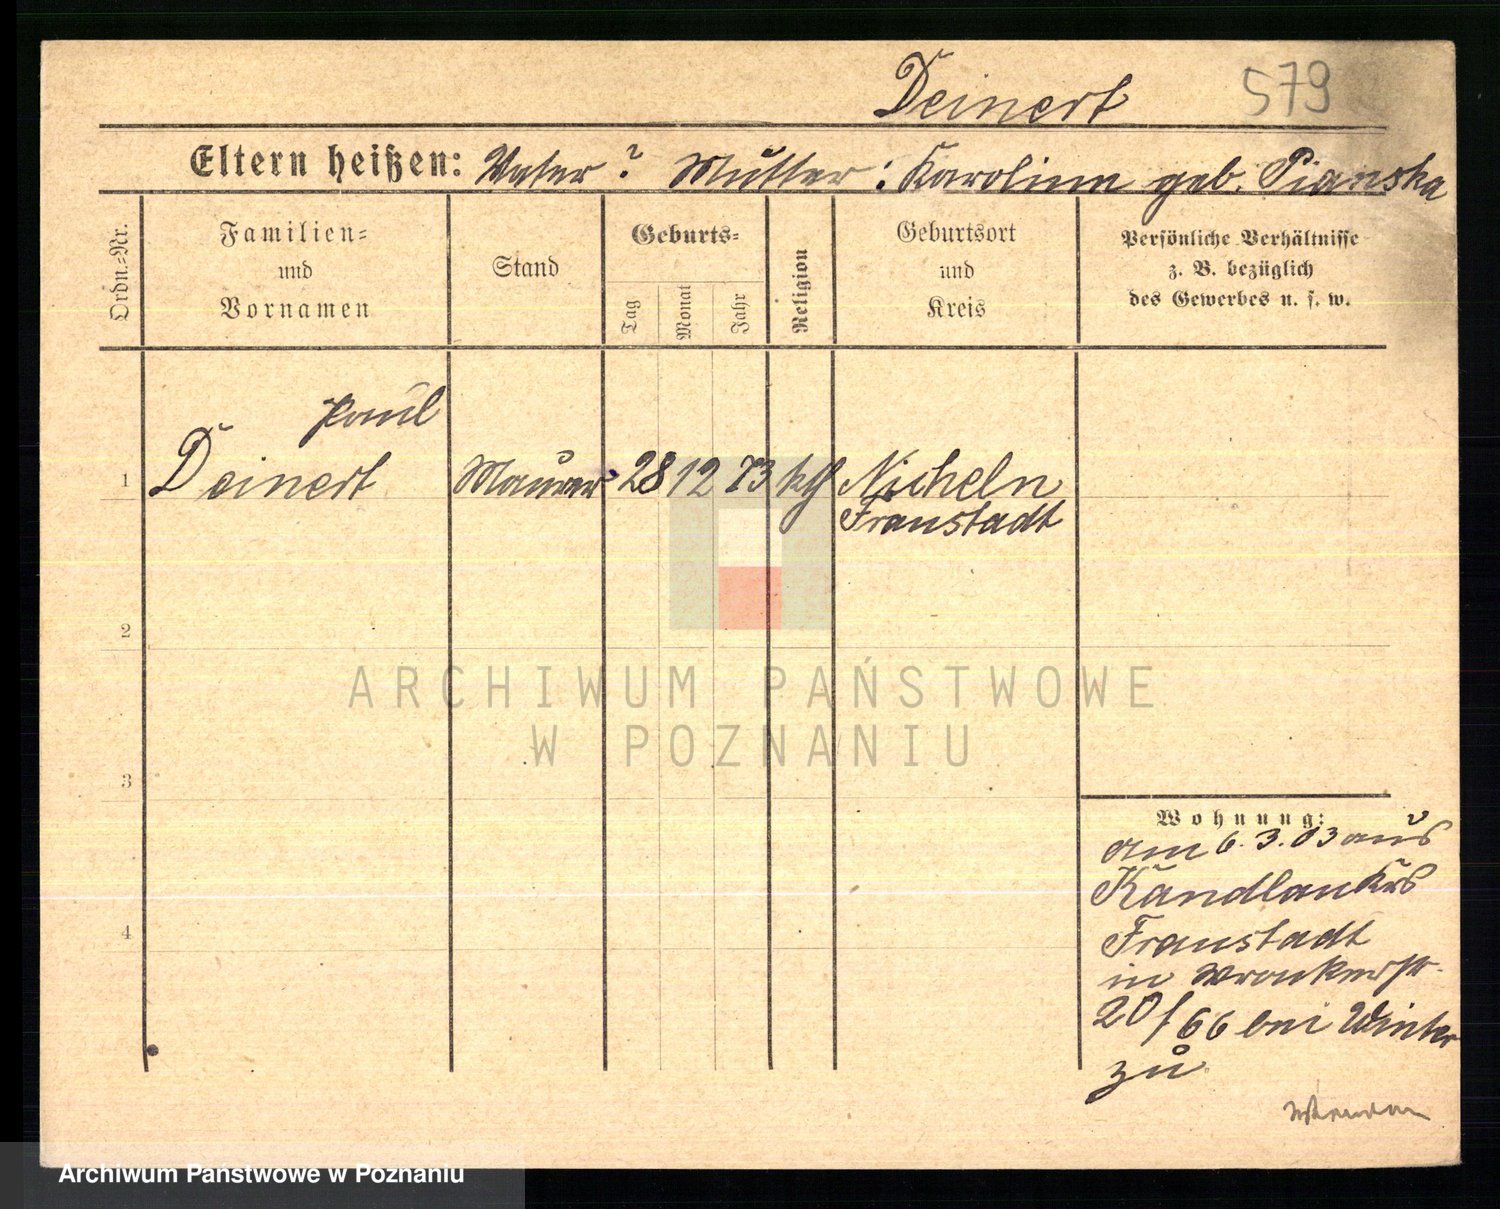 Deinert 579
Eltern heißen: Vater ? Mutter : Karoline geb. Pianska
Ordn.-Nr.
Familien-
und
Vornamen
Stand
Geburts-
Tag
Monat
Jahr
Religion
Geburtsort
und
Kreis
Persönliche Verhältnisse
z. B. bezüglich
des Gewerbes u. s. w.
Paul
1 Deinert Maurer 28 12 73 kth Nicheln
Fraustadt
2
ARCHIWUM PAŃSTWOWE
W POZNANIU
3
Wohnung:
am 6. 3. 03 aus
Kandlau Krs
Fraustadt
4
in Wronkerstr.
20/66 bei Winter
zu
Archiwum Państwowe w Poznaniu